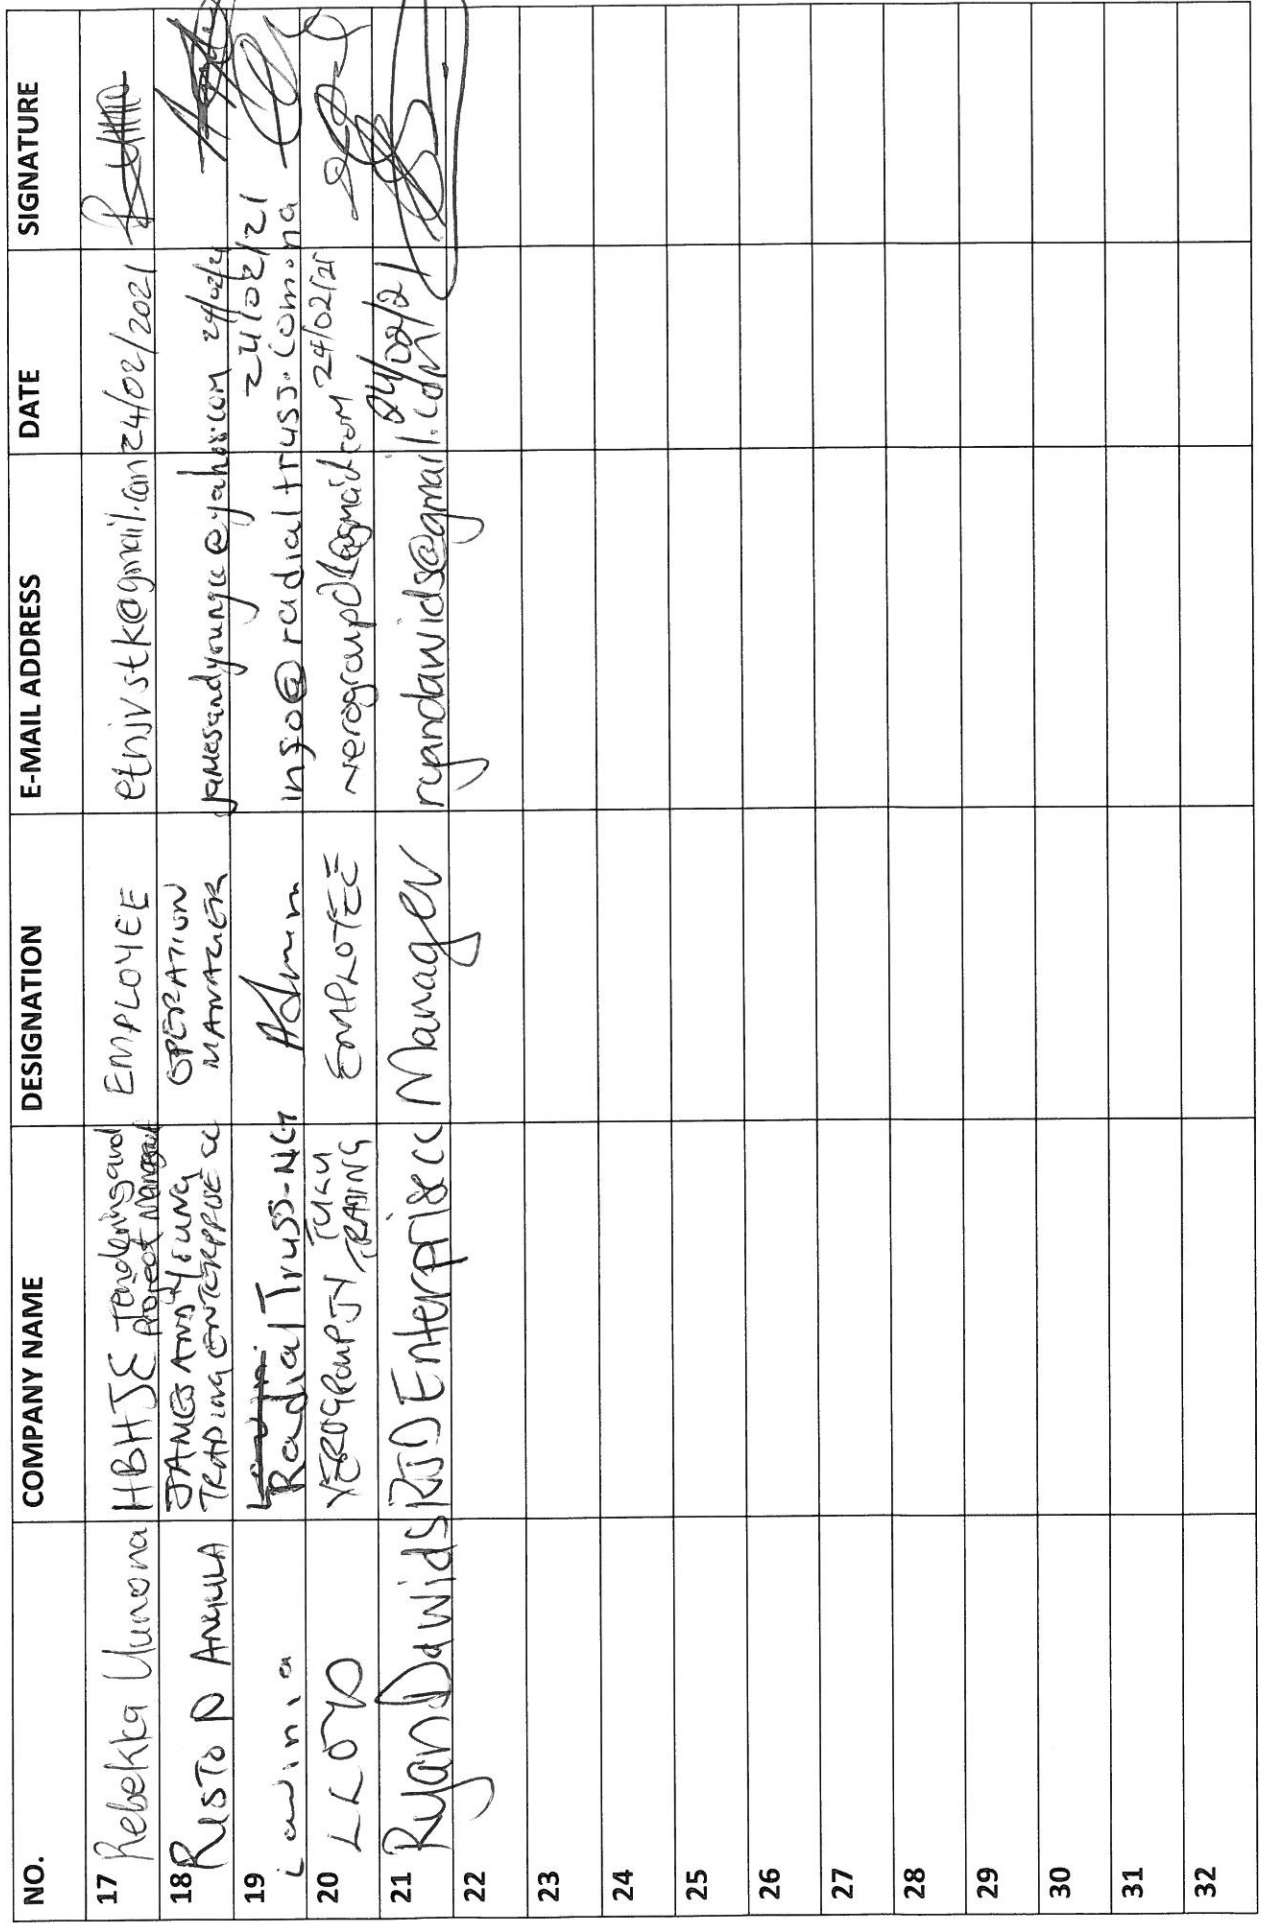 NO. COMPANY NAME DESIGNATION E-MAIL ADDRESS DATE SIGNATURE
17 Rebekka Uunona HBHJE Tendering and Project EMPLOYEE etnjvstk@gmail.com 24/02/2021
18 RISTO P ANGULA JAMES AND YOUNG OPERATION
TRADING ENTERPRISE CC MANAGER jamesandyoungcc@yahoo.com 24/02/21
19 Lavinia Radial Truss-NGT Admin info@radialtruss.com.na 24/02/21
20 LLOYD TRADING EMPLOYEE 24/02/21
21 Ryan Dawids RJD Enterprise cc Manager ryandawids@gmail.com 24/02/21
22
23
24
25
26
27
28
29
30
31
32